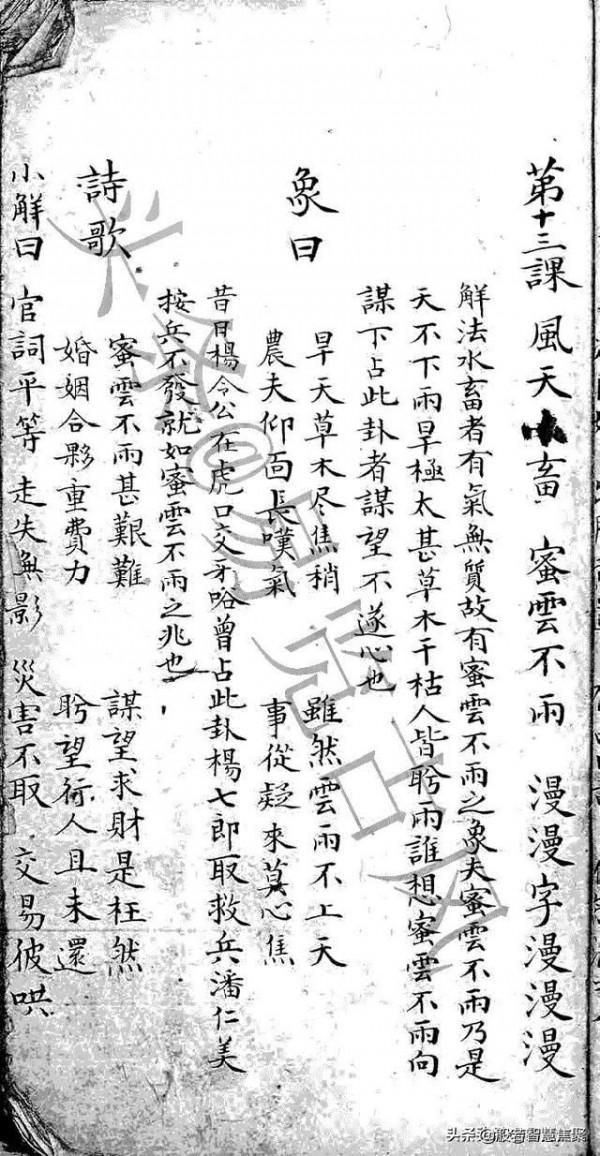 第十三課 風天小畜 蜜雲不雨 漫漫字漫漫漫
解法水畜者有氣無質故有蜜雲不雨之象夫蜜雲不雨乃是
天不下雨旱極太甚草木干枯人皆盻雨誰想蜜雲不雨向
謀下占此卦者謀望不遂心也
象曰
旱天草木尽焦稍 雖然雲雨不上天
農夫仰面長嘆氣 事從疑來莫心焦
昔日楊令公在虎口交牙峪曾占此卦楊七郎取救兵潘仁美
按兵不發就如蜜雲不雨之兆也
詩歌
蜜雲不雨甚艱難 謀望求財是枉然
婚姻合夥重費力 盻望行人且未還
小解曰 官詞平等 走失無影 災害不取 交易彼哄
头条@易覓古风
头条@般若智慧焦聚